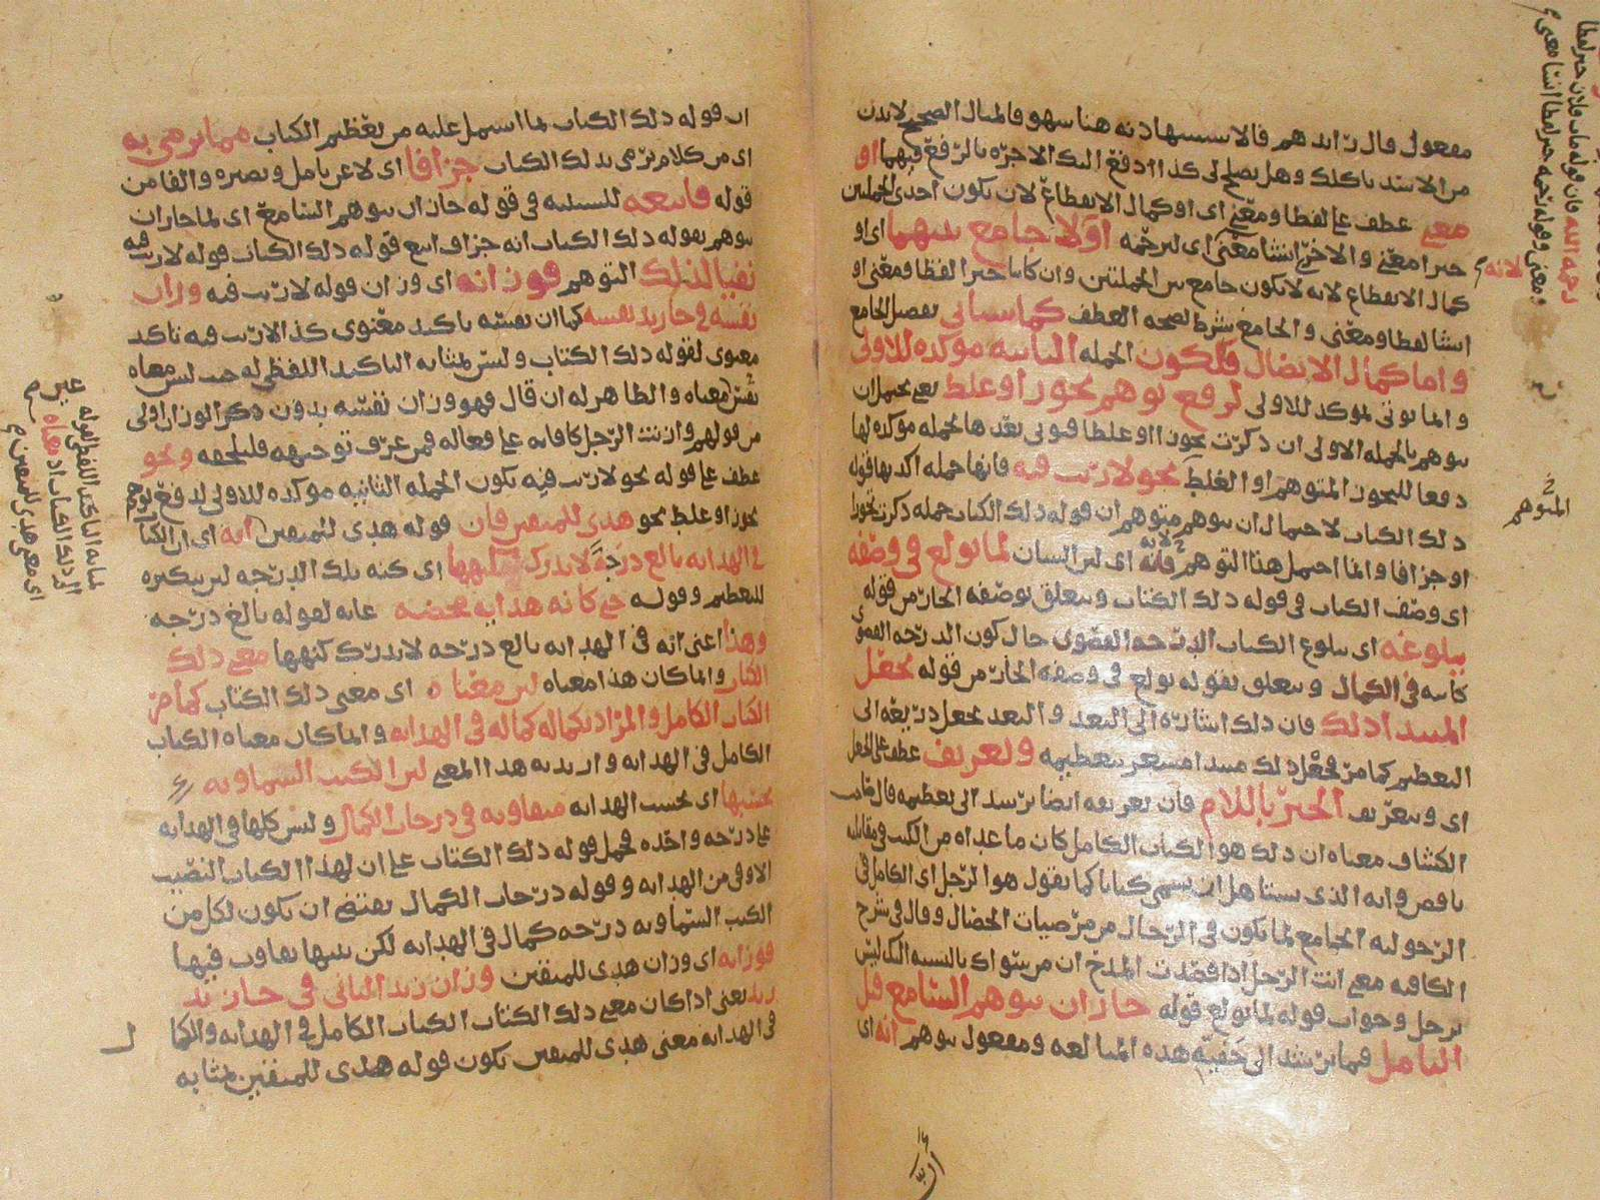 مفعولي قال زائدهم فالاستشهاد به هنا سهو فالمثال الصحيح لا تدن
من الاسد ياكلك وهل تصلح لي كذا ادفع اليك الاجرة بالرفع فيهما او
معنى عطف على لفظا ومعنى اي او كمال الانقطاع لان يكون احدى الجملتين
خبرا معنى والاخرى انشا معنى اي ليرحمه اولا جامع بينهما اي او
كمال الانقطاع لانه لا يكون جامع بين الجملتين وان كانا خبرا لفظا ومعنى او
انشا لفظا ومعنى والجامع شرط لصحة العطف كما سياتي تفصيل الجامع
واما كمال الاتصال فلكون الجملة الثانية موكدة للاولى
وانما يوتى بموكد للاولى لرفع توهم تجوز او غلط يعني يحتمل ان
يتوهم بالجملة الاولى ان ذكرت تجوزا او غلطا فيوتى بعدها بجملة موكدة لها
دفعا للتجوز المتوهم او الغلط نحو لا ريب فيه فانها جملة اكد بها قوله
ذلك الكتاب لاحتمال ان يتوهم متوهم ان قوله ذلك الكتاب جملة ذكرت تجوزا
او جزافا وانما احتمل هذا التوهم فانه اي لان الشان لما بولغ في وصفه
اي وصف الكتاب في قوله ذلك الكتاب ويتعلق بوصفه الجار من قوله
ببلوغه اي ببلوغ الكتاب الدرجة القصوى حال كون الدرجة القصوى
كاينة في الكمال ويتعلق بقوله بولغ في وصفه الجار من قوله بجعل
المبتدا ذلك فان ذلك اشارة الى البعد والبعد يجعل ذريعة الى
التعظيم كما مر فجعل ذلك مبتدا مشعر بتعظيمه وتعريف عطف على الجعل
اي وبتعريف الخبر باللام فان تعريفه ايضا يرشد الى تعظيمه قال صاحب
الكشاف معناه ان ذلك هو الكتاب الكامل كان ما عداه من الكتب في مقابلته
ناقص وانه الذي يستاهل ان يسمى كتابا كما يقول هو الرجل اي الكامل في
الرجولية الجامع لما يكون في الرجال من مرضيات الخصال وقال في شرح
الكافية معنى انت الرجل اذا قصدت المدح ان من سواك بالنسبة اليك ليس
برجل وجواب قوله لما بولغ قوله جاز ان يتوهم السامع قبل
التامل فيما يرشد الى حقية هذه المبالغة ومفعول يتوهم انه اي
لانه
المتوهم
ان قوله ذلك الكتاب لما اشتمل عليه من تعظيم الكتاب مما يرمى به
اي من كلام يرمى بذلك الكتاب جزافا اي لا عن تامل وبصيرة والفا من
قوله فاتبعه للسببية في قوله جاز ان يتوهم السامع اي لما جاز ان
يتوهم بقوله ذلك الكتاب انه جزاف اتبع قوله ذلك الكتاب قوله لا ريب فيه
نفيا لذلك التوهم فوزانه اي وزان قوله لا ريب فيه وزان
نفسه في جازيد نفسه كما ان نفسه تاكيد معنوي كذا لا ريب فيه تاكيد
معنوي لقوله ذلك الكتاب وليس بمثابة التاكيد اللفظي له حيث ليس معناه
نفس معناه والظاهر له ان قال فهو وزان نفسه بدون ذكر الوزان اولى
من قولهم وزانت الرجل كافاته على فعاله فمن عرف توجيهه فليلحقه ونحو
عطف على قوله نحو لا ريب فيه يكون الجملة الثانية موكدة للاولى لدفع توهم
تجوز او غلط نحو هدى للمتقين فان قوله هدى للمتقين انه اي ان الكتاب
في الهداية بالغ درجة لا يدرك كنهها اي كنه تلك الدرجة لان تنكيره
للتعظيم وقوله حتى كانه هداية محضة غاية لقوله بالغ درجة
وهذا اعني انه في الهداية بالغ درجة لا يدرك كنهها معنى ذلك
الكتاب وانما كان هذا معناه لان معناه اي معنى ذلك الكتاب كما مر
الكتاب الكامل والمراد بكماله كماله في الهداية وانما كان معناه الكتاب
الكامل في الهداية واريد به هذا المعنى لان الكتب السماوية
بحسبها اي بحسب الهداية متفاوتة في درجات الكمال وليس كلها في الهداية
على درجة واحدة فيحمل قوله ذلك الكتاب على ان لهذا الكتاب النصيب
الاوفى من الهداية وقوله درجات الكمال يقتضي ان يكون لكل من
الكتب السماوية درجة كمال في الهداية لكن بينها تفاوت فيها
فوزانه اي وزان هدى للمتقين وزان زيد الثاني في جازيد
زيد يعني اذا كان معنى ذلك الكتاب الكتاب الكامل في الهداية والكمال
في الهداية معنى هدى للمتقين يكون قوله هدى للمتقين بمثابة